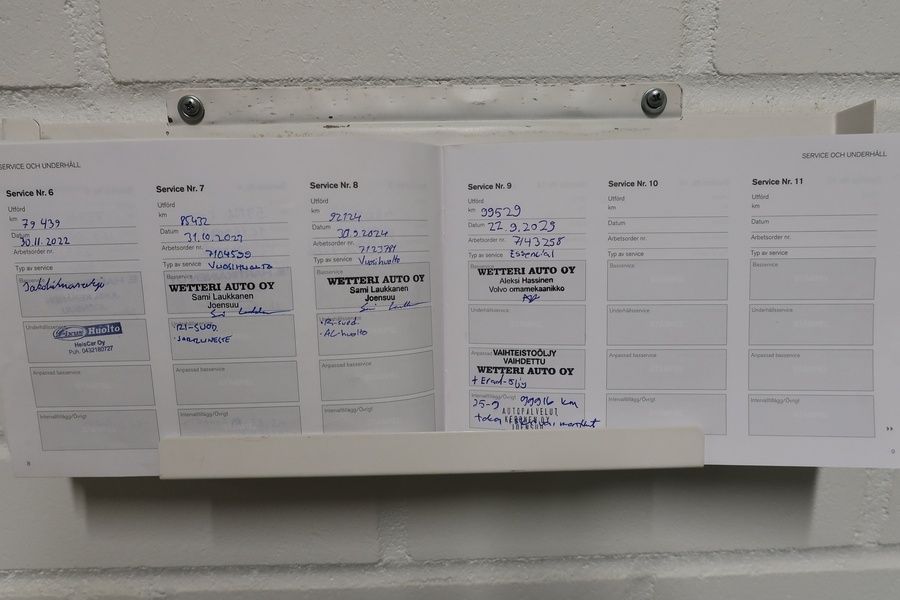 SERVICE OCH UNDERHÅLL
Service Nr. 6
Utförd
km 79 439
Datum 30.11.2022
Arbetsorder nr.
Typ av service
Basservice
Jakohihnaremppa
Underhållsservice
Huolto
HeisCar Oy
Puh. 0432180727
Anpassad basservice
Intervalltillägg/Övrigt
8
Service Nr. 7
Utförd
km 85432
Datum 31.10.2023
Arbetsorder nr. 7104539
Typ av service VUOSIHUOLTO
Basservice
WETTERI AUTO OY
Sami Laukkanen
Joensuu
RI-SUOD
JARRUNESTE
Anpassad basservice
Intervalltillägg/Övrigt
Service Nr. 8
Utförd
km 92124
Datum 30.9.2024
Arbetsorder nr. 7123781
Typ av service Vuosihuolto
Basservice
WETTERI AUTO OY
Sami Laukkanen
Joensuu
-RI-suod.
-AC-huolto
Anpassad basservice
Intervalltillägg/Övrigt
SERVICE OCH UNDERHÅLL
Service Nr. 9
Utförd
km 99529
Datum 22.9.2025
Arbetsorder nr. 7143258
Typ av service Essential
WETTERI AUTO OY
Aleksi Hassinen
Volvo omamekaanikko
Underhållsservice
Anpassad
VAIHTEISTOÖLJY
VAIHDETTU
WETTERI AUTO OY
+ Erad-öljy
Intervalltillägg/Övrigt
25-9 99916 km
AUTOPALVELUT
JOENSUU
Service Nr. 10
Utförd
km
Datum
Arbetsorder nr.
Typ av service
Basservice
Underhållsservice
Anpassad basservice
Intervalltillägg/Övrigt
Service Nr. 11
Utförd
km
Datum
Arbetsorder nr.
Typ av service
Basservice
Underhållsservice
Anpassad basservice
Intervalltillägg/Övrigt